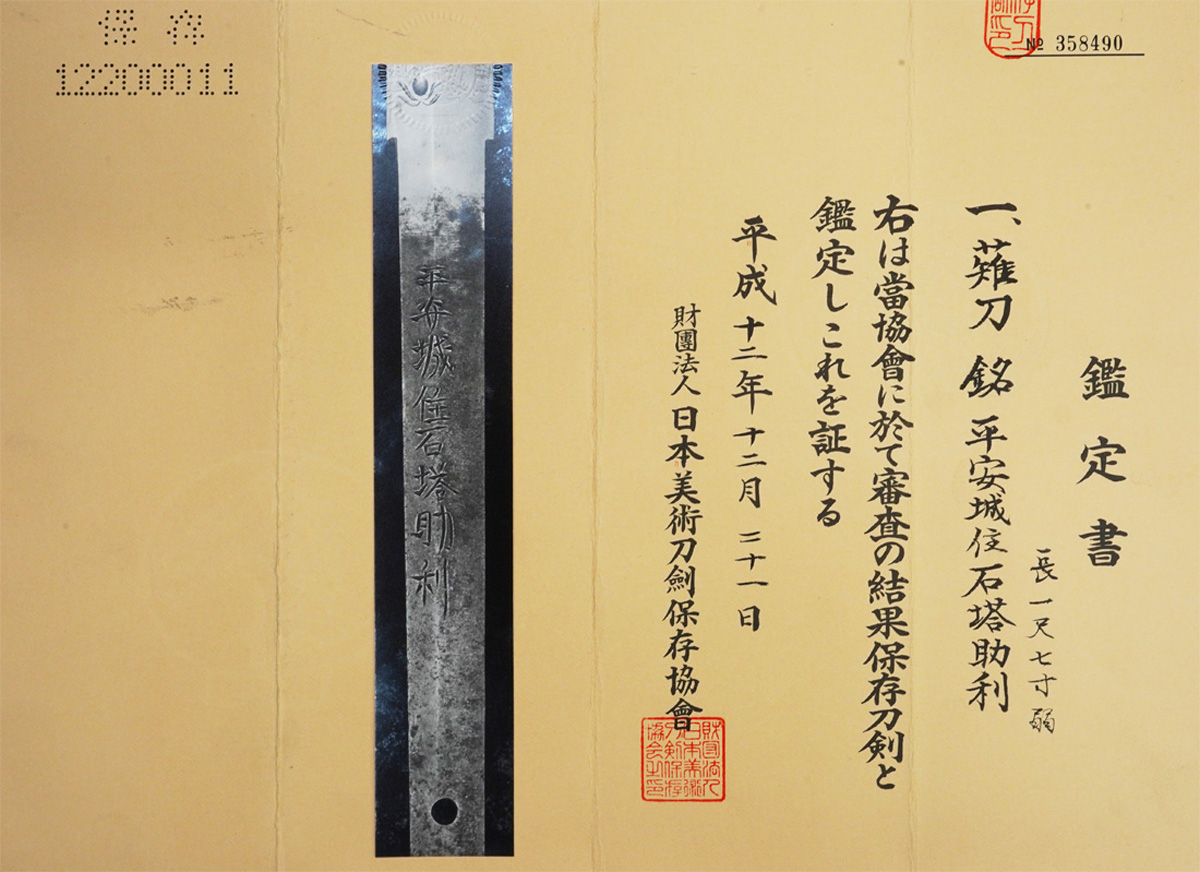 保存
12200011
№ 358490
鑑定書
一、薙刀 銘 平安城住石塔助利
長一尺七寸弱
右は當協會に於て審査の結果保存刀剣と
鑑定しこれを証する
平成十二年十二月二十一日
財團法人日本美術刀劍保存協會
財団法人日本美術刀剣保存協会之印
平安城住石塔助利